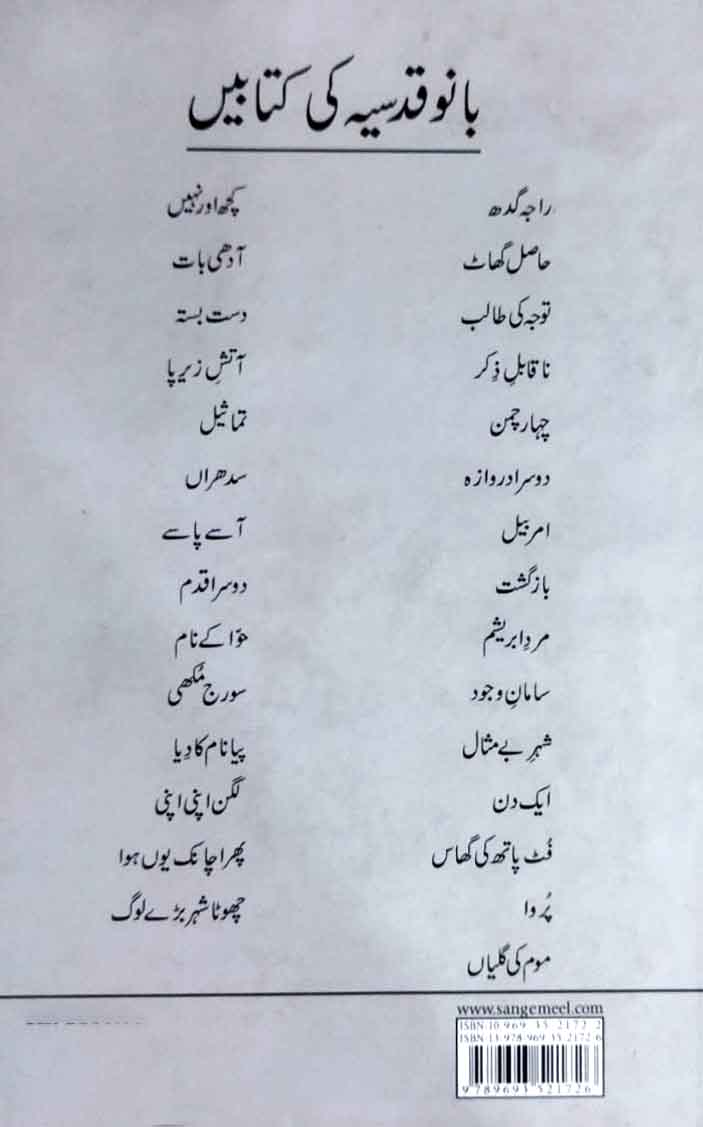 بانو قدسیہ کی کتابیں
راجہ گدھ
حاصل گھاٹ
توجہ کی طالب
ناقابلِ ذِکر
چہار چمن
دوسرا دروازہ
امر بیل
بازگشت
مردِ ابریشم
سامانِ وجود
شہرِ بے مثال
ایک دن
فُٹ پاتھ کی گھاس
پُروا
موم کی گلیاں
کچھ اور نہیں
آدھی بات
دست بستہ
آتشِ زیرِ پا
تماثیل
سدھراں
آسے پاسے
دوسرا قدم
حوّا کے نام
سورج مُکھی
پیا نام کا دِیا
لگن اپنی اپنی
پھر اچانک یوں ہوا
چھوٹا شہر بڑے لوگ
www.sangemeel.com
ISBN-10: 969-35-2172-2
ISBN-13: 978-969-35-2172-6
9 789693 521726